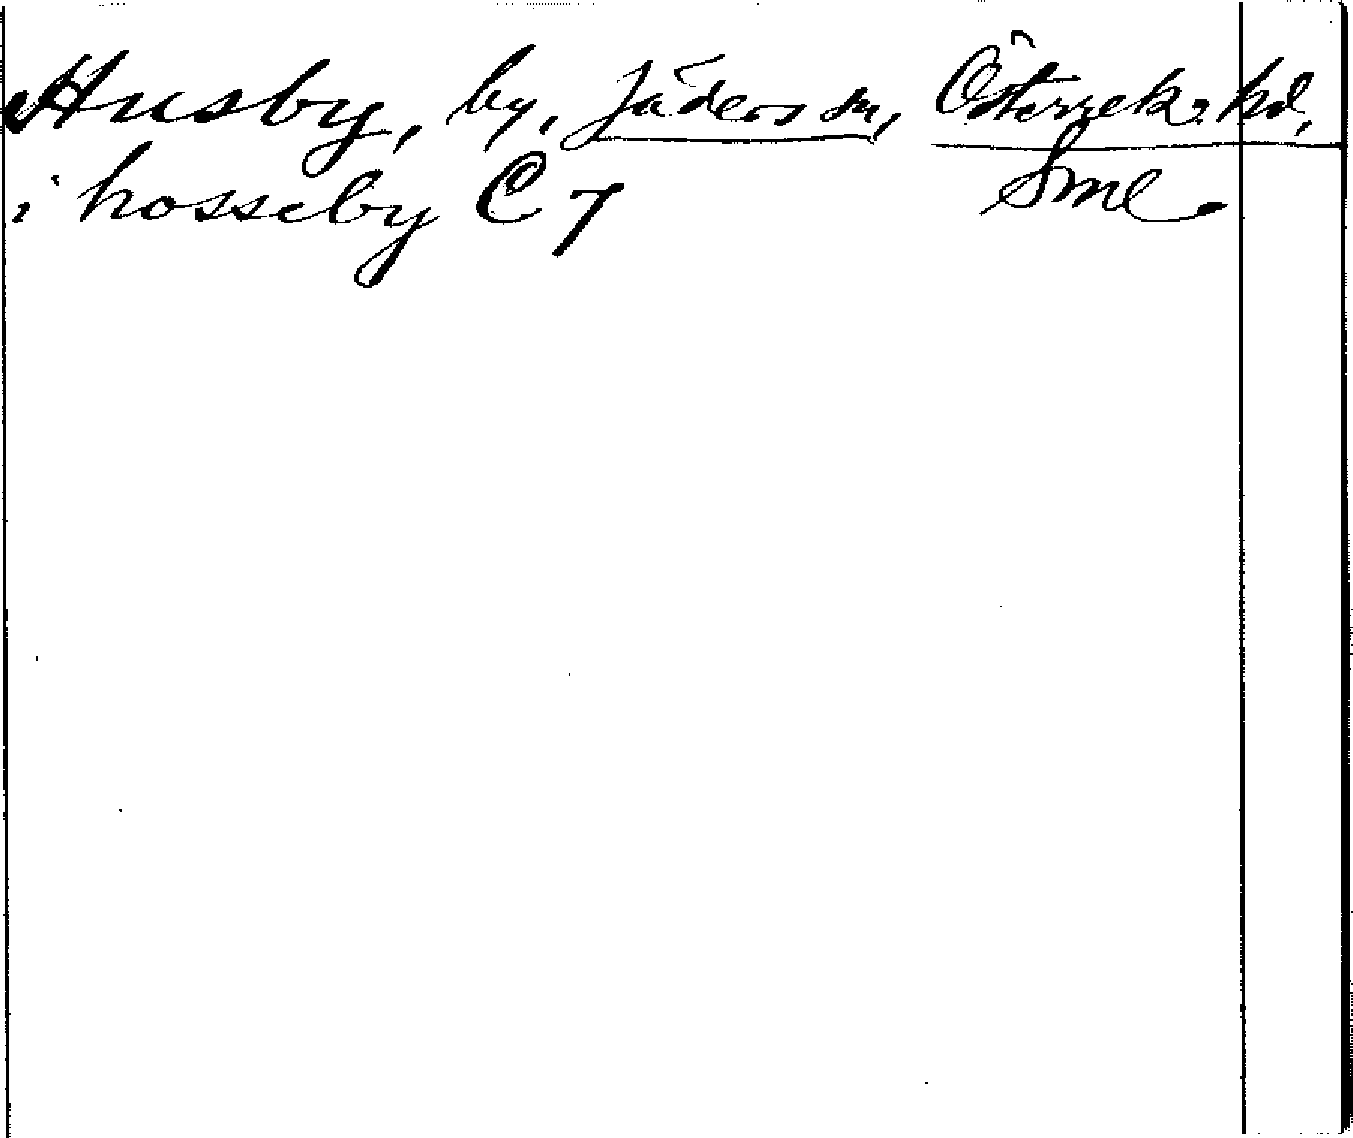 Husby, by, Jäders sn, Österrek. hd,
Sml.
i hosseby C 7